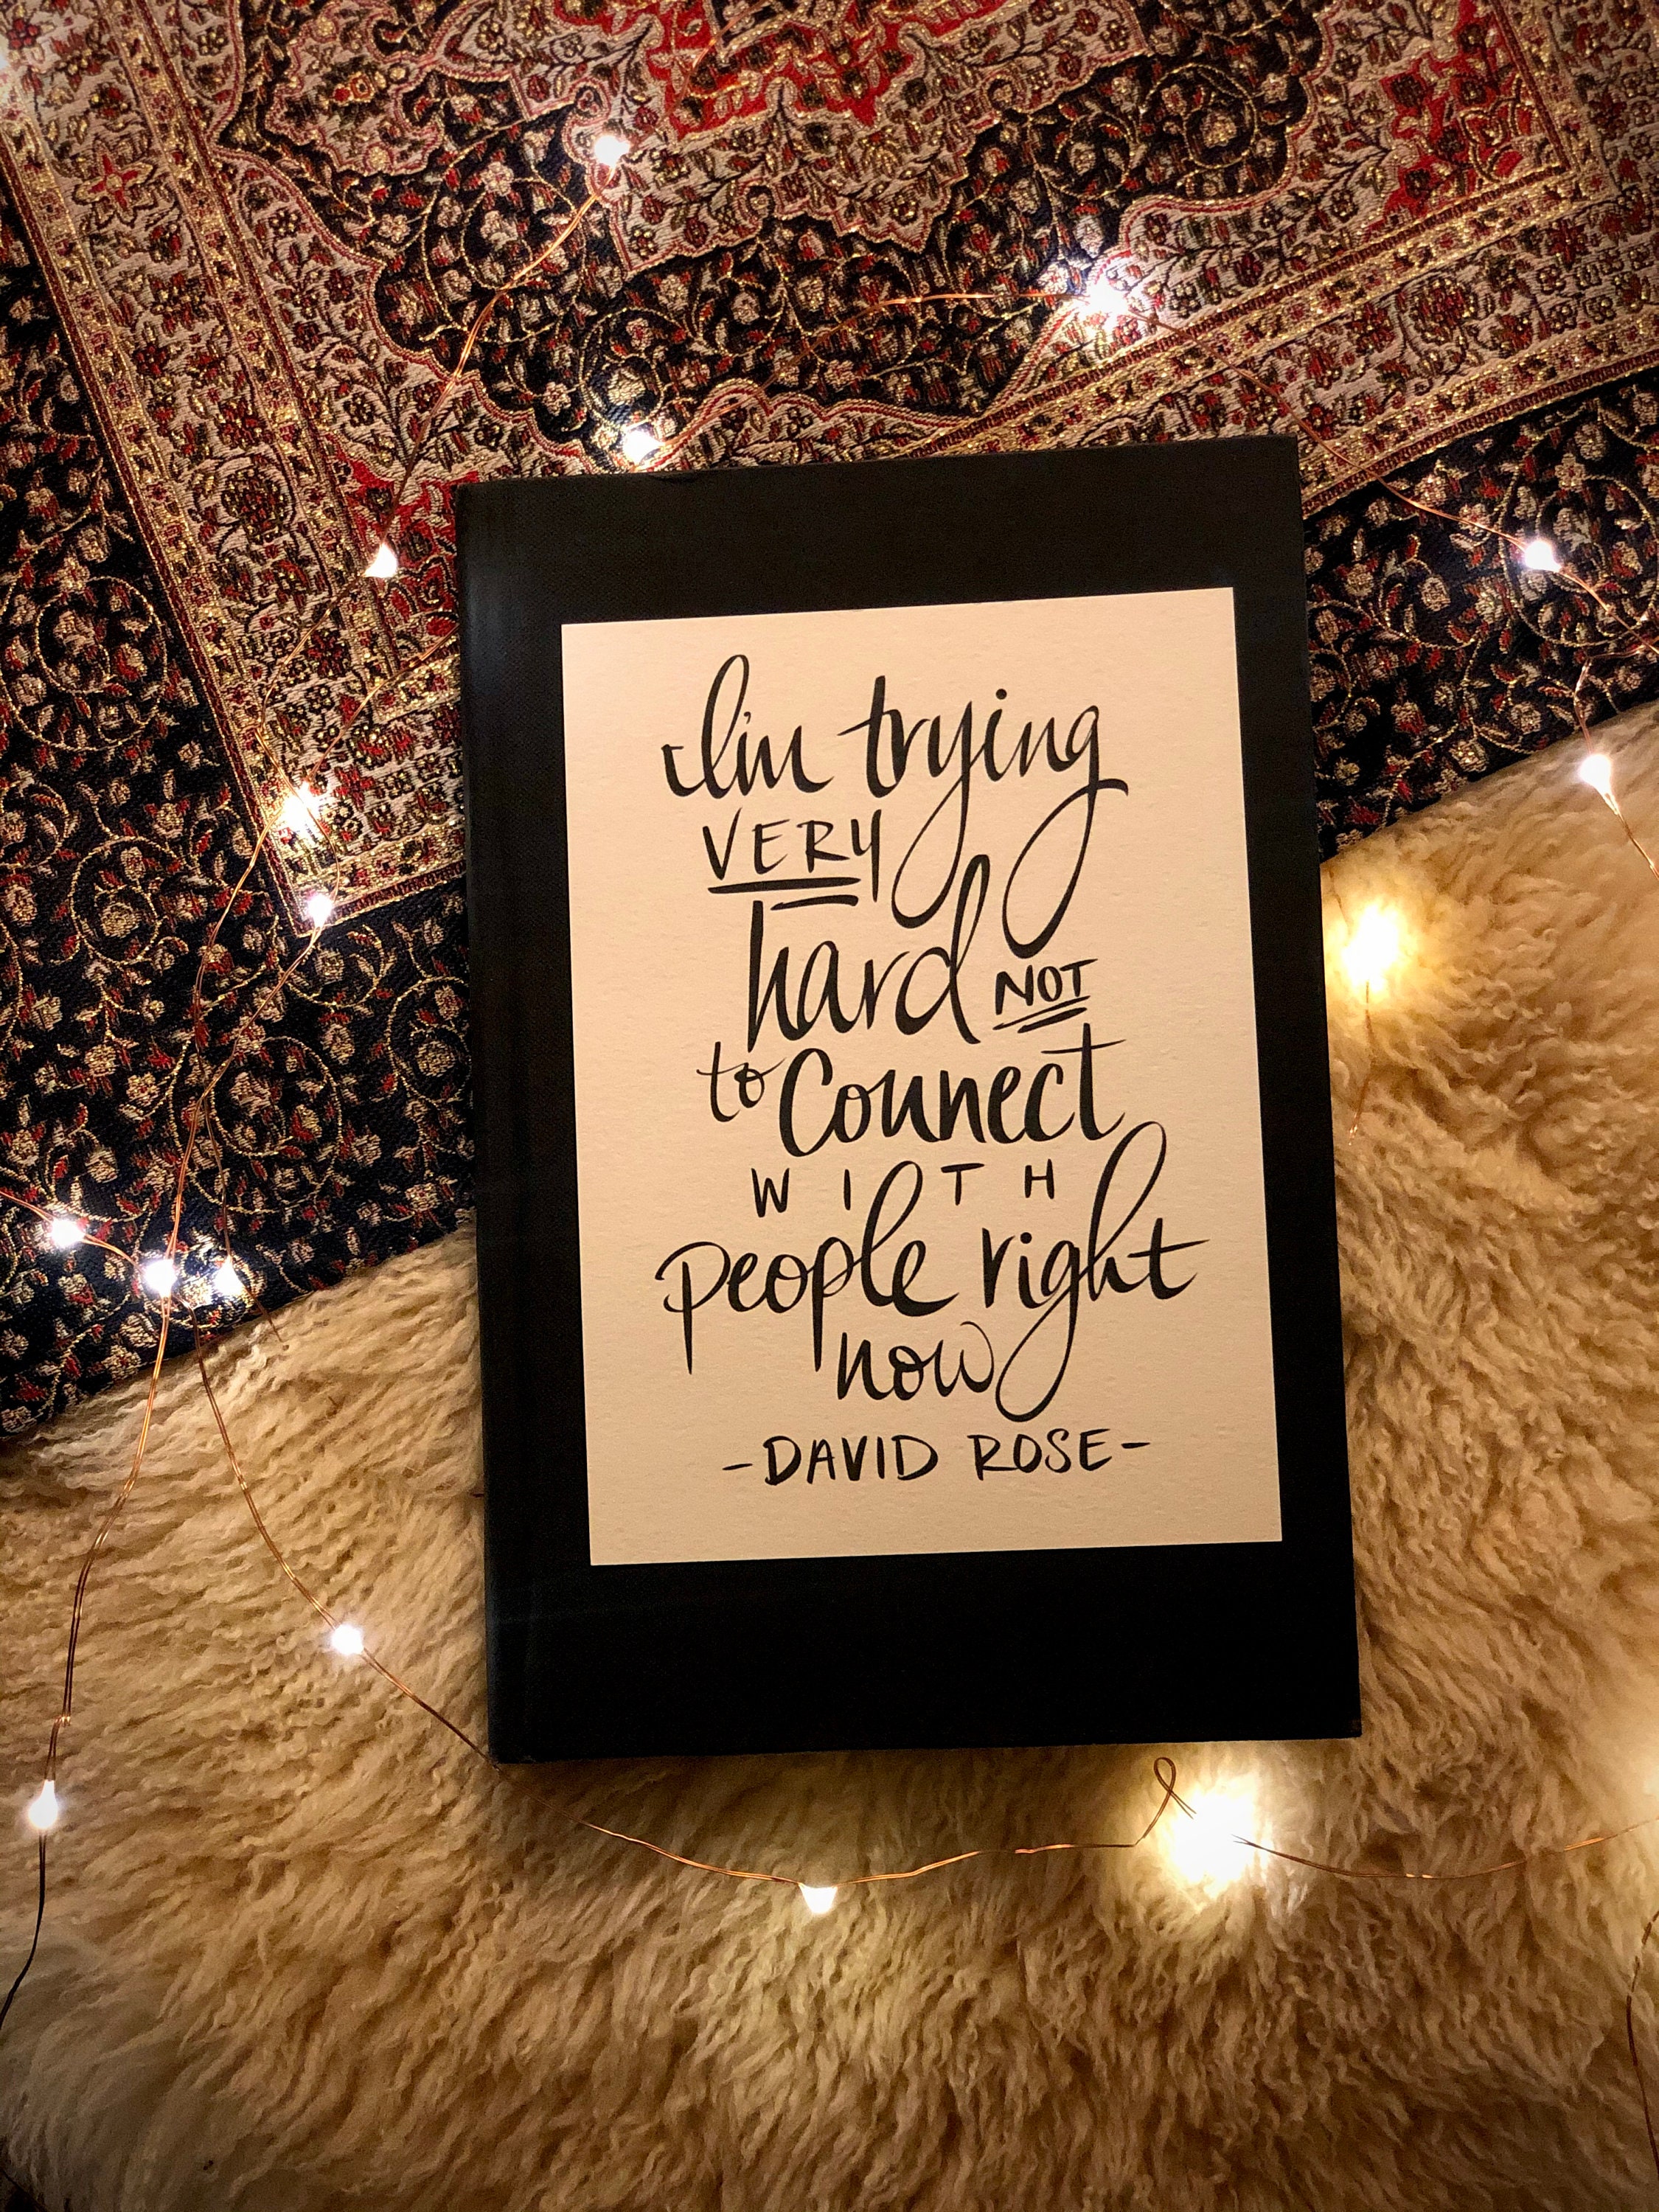 I'm trying
VERY
hard NOT
to Connect
WITH
people right
now
-DAVID ROSE-